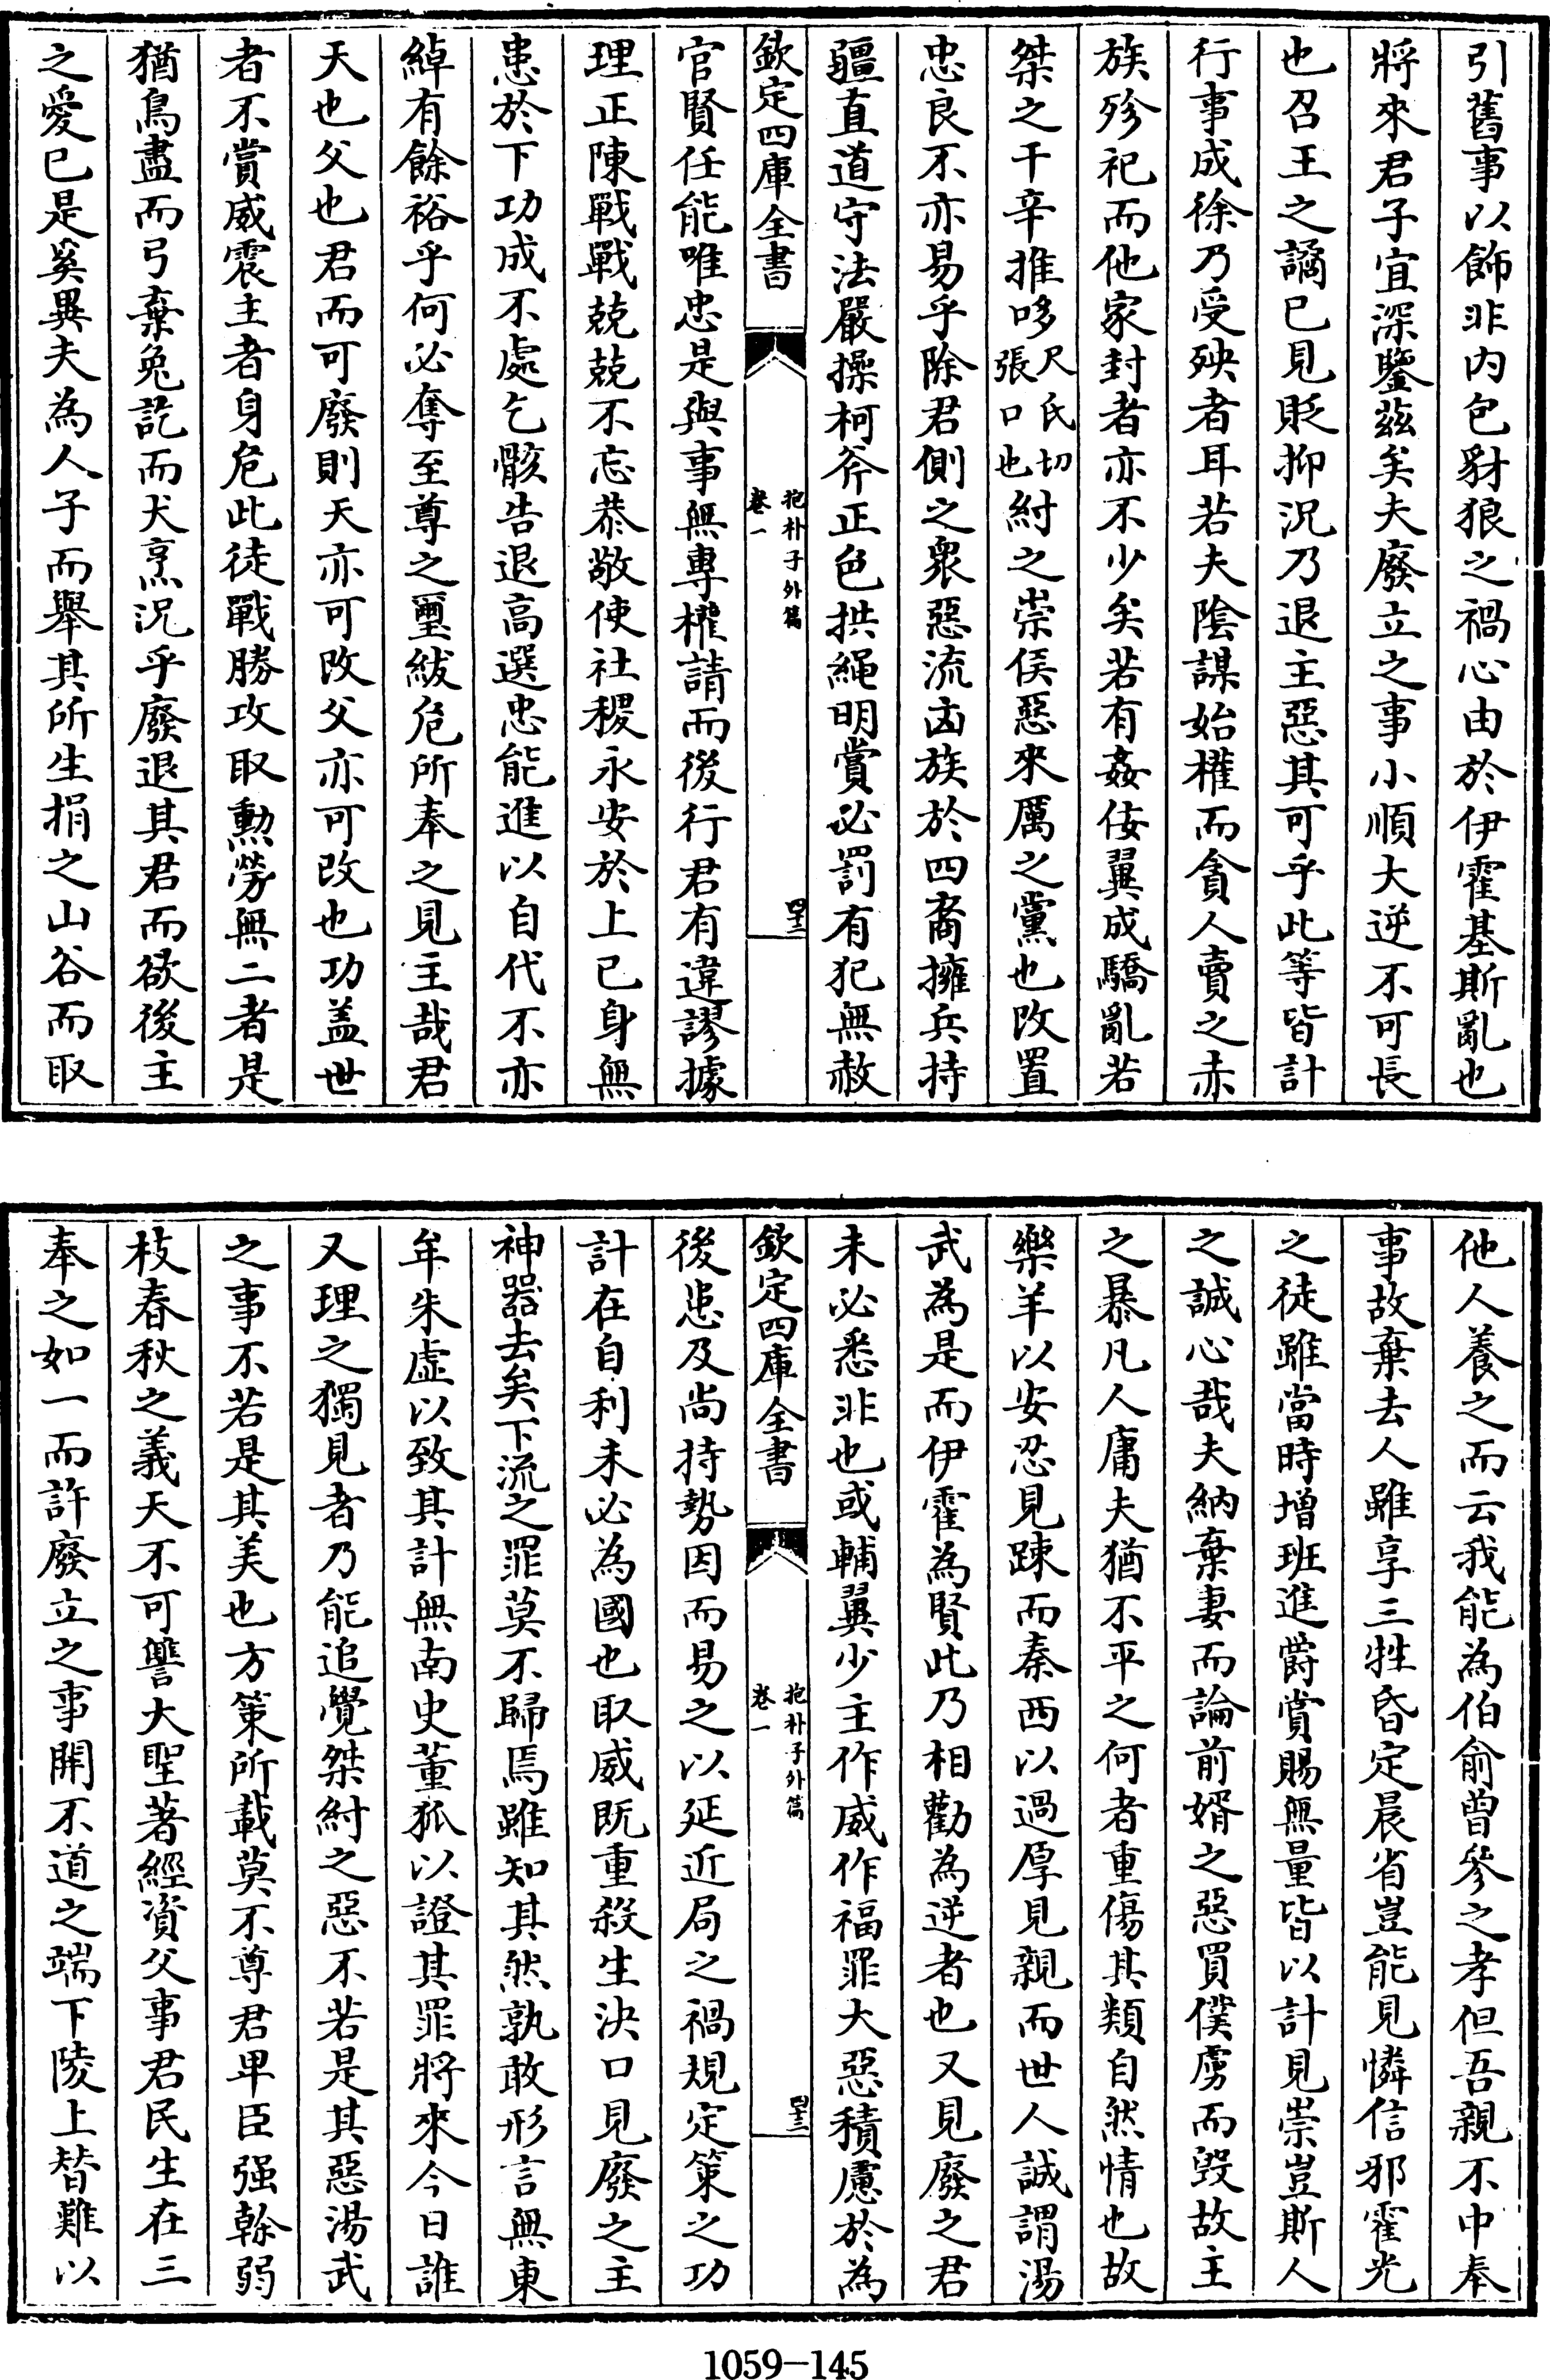 引舊事以飾非内包豺狼之禍心由於伊霍基斯亂也
將來君子宜深鑒兹矣夫廢立之事小順大逆不可長
也召王之譎已見貶抑況乃退主惡其可乎此等皆計
行事成徐乃受殃者耳若夫陰謀始權而貪人賣之赤
族殄祀而他家封者亦不少矣若有姦佞翼成驕亂若
桀之干辛推哆尺氏切張口也紂之崇侯惡來厲之黨也改置
忠良不亦易乎除君側之衆惡流凶族於四裔擁兵持
疆直道守法嚴操柯斧正色拱繩明賞必罰有犯無赦
欽定四庫全書
抱朴子外篇
卷一
四十二
官賢任能唯忠是與事無專權請而後行君有違謬據
理正陳戰戰兢兢不忘恭敬使社稷永安於上已身無
患於下功成不處乞骸告退高選忠能進以自代不亦
綽有餘裕乎何必奪至尊之璽紱危所奉之見主哉君
天也父也君而可廢則天亦可改父亦可改也功盖世
者不賞威震主者身危此徒戰勝攻取勲勞無二者是
猶鳥盡而弓棄兔訖而犬烹況乎廢退其君而欲後主
之愛已是奚異夫為人子而舉其所生捐之山谷而取
他人養之而云我能為伯俞曾參之孝但吾親不中奉
事故棄去人雖享三牲昏定晨省豈能見憐信邪霍光
之徒雖當時增班進爵賞賜無量皆以計見崇豈斯人
之誠心哉夫納棄妻而論前婿之惡買僕虜而毀故主
之暴凡人庸夫猶不平之何者重傷其類自然情也故
樂羊以安忍見踈而秦西以過厚見親而世人誠謂湯
武為是而伊霍為賢此乃相勸為逆者也又見廢之君
未必悉非也或輔翼少主作威作福罪大惡積慮於為
欽定四庫全書
抱朴子外篇
卷一
四十三
後患及尚持勢因而易之以延近局之禍規定策之功
計在自利未必為國也取威既重殺生決口見廢之主
神器去矣下流之罪莫不歸焉雖知其然孰敢形言無東
牟朱虛以致其計無南史董狐以證其罪將來今日誰
又理之獨見者乃能追覺桀紂之惡不若是其惡湯武
之事不若是其美也方策所載莫不尊君卑臣强榦弱
枝春秋之義天不可讐大聖著經資父事君民生在三
奉之如一而許廢立之事開不道之端下陵上替難以
1059-145